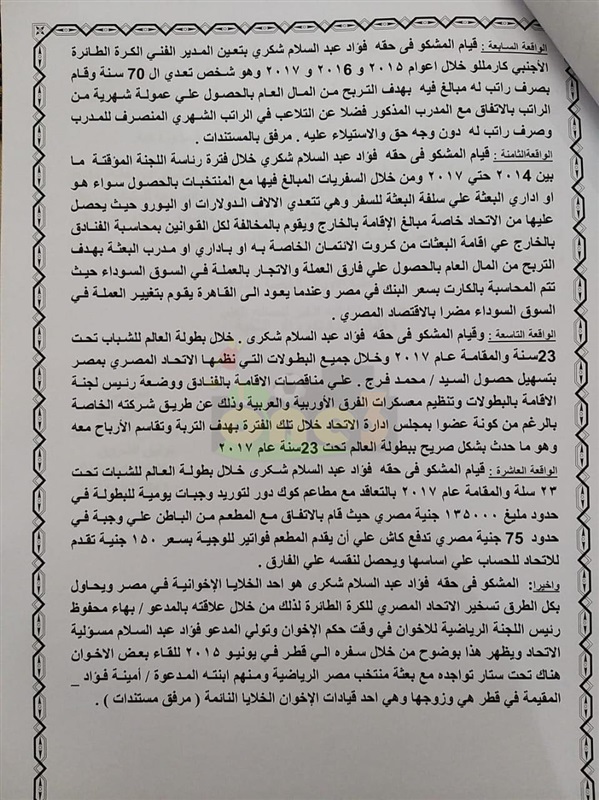 الواقعة السابعة : قيام المشكو فى حقه فؤاد عبد السلام شكري بتعين المدير الفني الكرة الطائرة
الأجنبي كارمللو خلال اعوام ٢٠١٥ و ٢٠١٦ و ٢٠١٧ وهو شخص تعدي ال 70 سنة وقام
بصرف راتب له مبالغ فيه بهدف التربح من المال العام بالحصول علي عمولة شهرية من
الراتب بالاتفاق مع المدرب المذكور فضلا عن التلاعب في الراتب الشهري المنصرف للمدرب
وصرف راتب له دون وجه حق والاستيلاء عليه . مرفق بالمستندات .
الواقعةالثامنة : قيام المشكو فى حقه فؤاد عبد السلام شكري خلال فترة رئاسة اللجنة المؤقتة ما
بين ٢٠١٤ حتي ٢٠١٧ ومن خلال السفريات المبالغ فيها مع المنتخبات بالحصول سواء هو
او اداري البعثة علي سلفة البعثة للسفر وهي تتعدي الالاف الدولارات او اليورو حيث يحصل
عليها من الاتحاد خاصة مبالغ الإقامة بالخارج ويقوم بالمخالفة لكل القوانين بمحاسبة الفنادق
بالخارج عي اقامة البعثات من كروت الائتمان الخاصة به او باداري او مدرب البعثة بهدف
التربح من المال العام بالحصول علي فارق العملة والاتجار بالعملة في السوق السوداء حيث
تتم المحاسبة بالكارت بسعر البنك في مصر وعندما يعود الى القاهرة يقوم بتغيير العملة في
السوق السوداء مضرا بالاقتصاد المصري .
الواقعة التاسعة : وقيام المشكو فى حقه فؤاد عبد السلام شكرى . خلال بطولة العالم للشباب تحت
23سنة والمقامة عام ٢٠١٧ وخلال جميع البطولات التي نظمها الاتحاد المصري بمصر
بتسهيل حصول السيد / محمد فرج . علي مناقصات الاقامة بالفنادق ووضعة رئيس لجنة
الاقامة بالبطولات وتنظيم معسكرات الفرق الأوربية والعربية وذلك عن طريق شركته الخاصة
بالرغم من كونة عضوا بمجلس ادارة الاتحاد خلال تلك الفترة بهدف التربة وتقاسم الأرباح معه
وهو ما حدث بشكل صريح ببطولة العالم تحت 23سنة عام ٢٠١٧
الواقعة العاشرة : قيام المشكو فى حقه فؤاد عبد السلام شكرى خلال بطولة العالم للشبات تحت
٢٣ سلة والمقامة عام ٢٠١٧ بالتعاقد مع مطاعم كوك دور لتوريد وجبات يومية للبطولة في
حدود مليغ ١٣٥٠٠٠ جنية مصري حيث قام بالاتفاق مع المطعم من الباطن علي وجبة في
حدود 75 جنية مصري تدفع كاش علي أن يقدم المطعم فواتير للوجبة بسعر ١٥٠ جنية تقدم
للاتحاد للحساب علي اساسها ويحصل لنقسه علي الفارق .
واخيرا: المشكو فى حقه فؤاد عبد السلام شكرى هو احد الخلايا الإخوانية في مصر ويحاول
بكل الطرق تسخير الاتحاد المصري للكرة الطائرة لذلك من خلال علاقته بالمدعو / بهاء محفوظ
رئيس اللجنة الرياضية للاخوان في وقت حكم الإخوان وتولي المدعو فؤاد عبد السلام مسؤلية
الاتحاد ويظهر هذا بوضوح من خلال سفره الي قطر في يونيو ٢٠١٥ للقاء بعض الاخوان
هناك تحت ستار تواجده مع بعثة منتخب مصر الرياضية ومنهم ابنته المدعوة / أمينة فؤاد _
المقيمة في قطر هي وزوجها وهي احد قيادات الإخوان الخلايا النائمة ( مرفق مستندات ) .